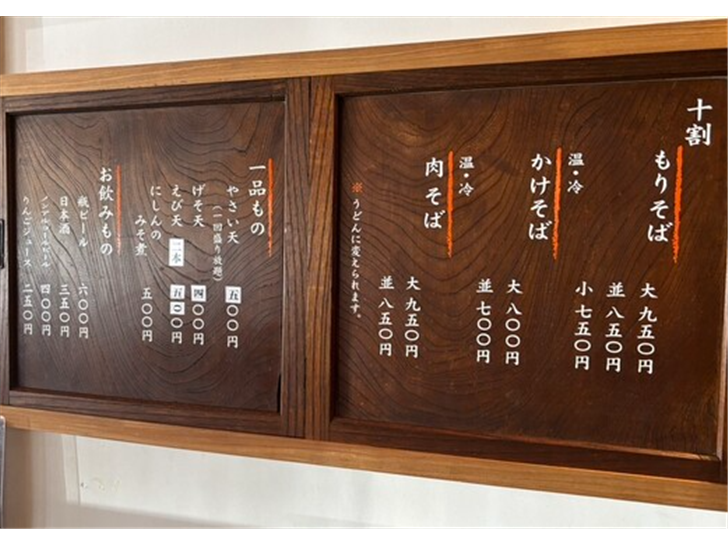 十割
もりそば
大 九五〇円
並 八五〇円
小 七五〇円
温・冷
かけそば
大 八〇〇円
並 七〇〇円
温・冷
肉そば
大 九五〇円
並 八五〇円
※うどんに変えられます。
一品もの
やさい天 五〇〇円
(一回盛り放題)
げそ天 四〇〇円
えび天 二本 五〇〇円
にしんの
みそ煮 五〇〇円
お飲みもの
瓶ビール 六〇〇円
日本酒 三五〇円
ノンアルコールビール 四〇〇円
りんごジュース 二五〇円